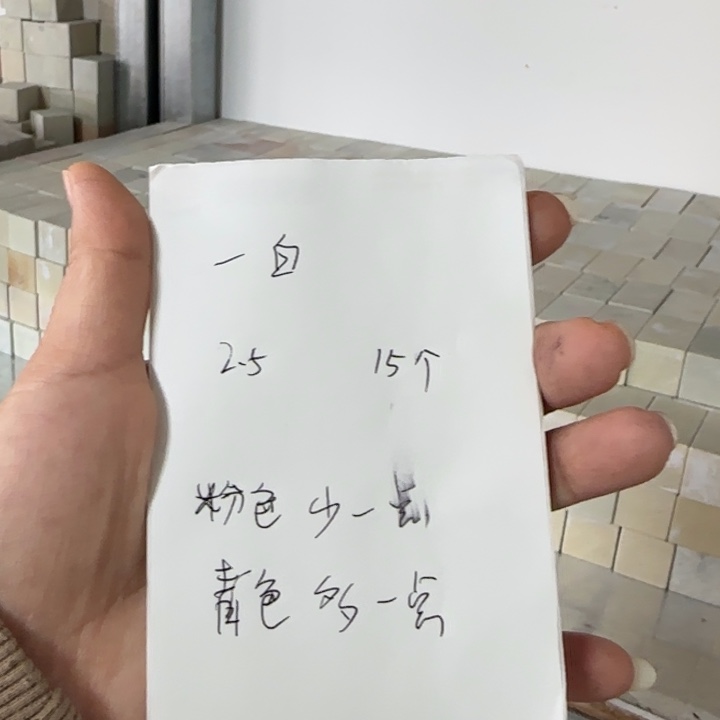 一白
2.5 15个
粉色少一点
青色多一点